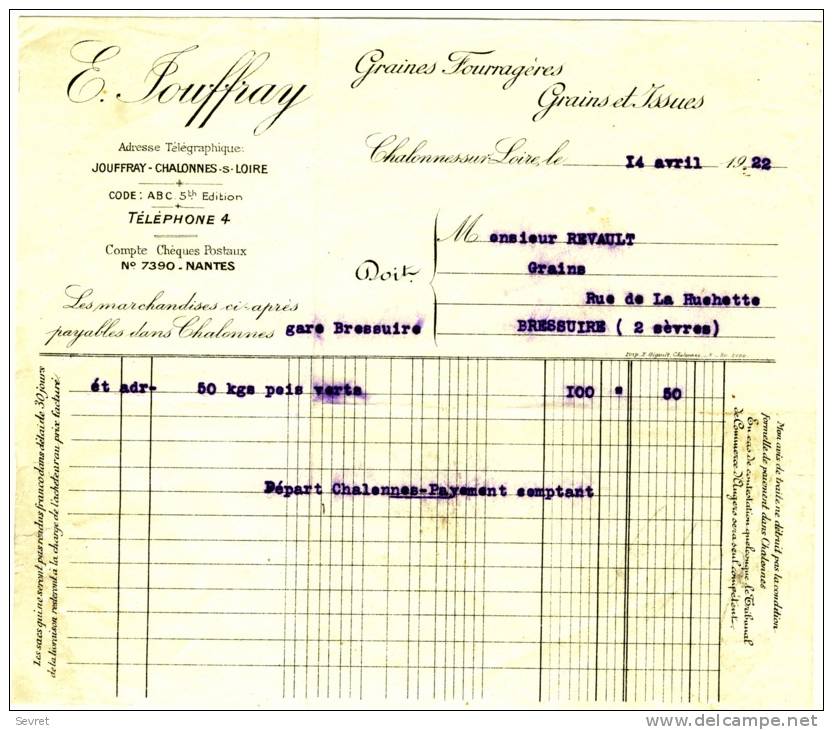 E. Jouffray
Graines Fourragères
Grains et Issues
Adresse Télégraphique:
JOUFFRAY-CHALONNES-s-LOIRE
CODE: ABC 5th Edition
TÉLÉPHONE 4
Compte Chèques Postaux
No 7390-NANTES
Chalonnes-sur-Loire, le 14 avril 1922
Doit
M ensieur REVAULT
Grains
Rue de La Huchette
BRESSUIRE ( 2 sèvres)
Les marchandises ci-après
payables dans Chalonnes gare Bressuire
ét adr- 50 kgs pois verts 100 " 50
Départ Chalonnes-Payement comptant
Les sacs qui ne seront pas rendus franco dans délai de 30 jours
de la livraison resteront à la charge de l'acheteur au prix facturé.
Mon avis de traite ne détruit pas la condition
formelle de paiement dans Chalonnes
En cas de contestation quelconque le Tribunal
de Commerce d'Angers sera seul compétent.
Sevret
www.delcampe.net